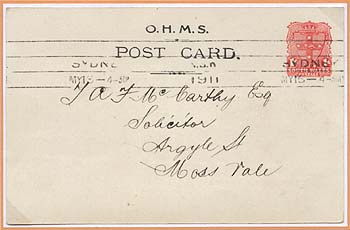 O.H.M.S.
POST CARD.
SYDNE
MY15-4-
1911
SYDNE
MY15-4-
J A F McCarthy Esq
Solicitor
Argyle St
Moss Vale